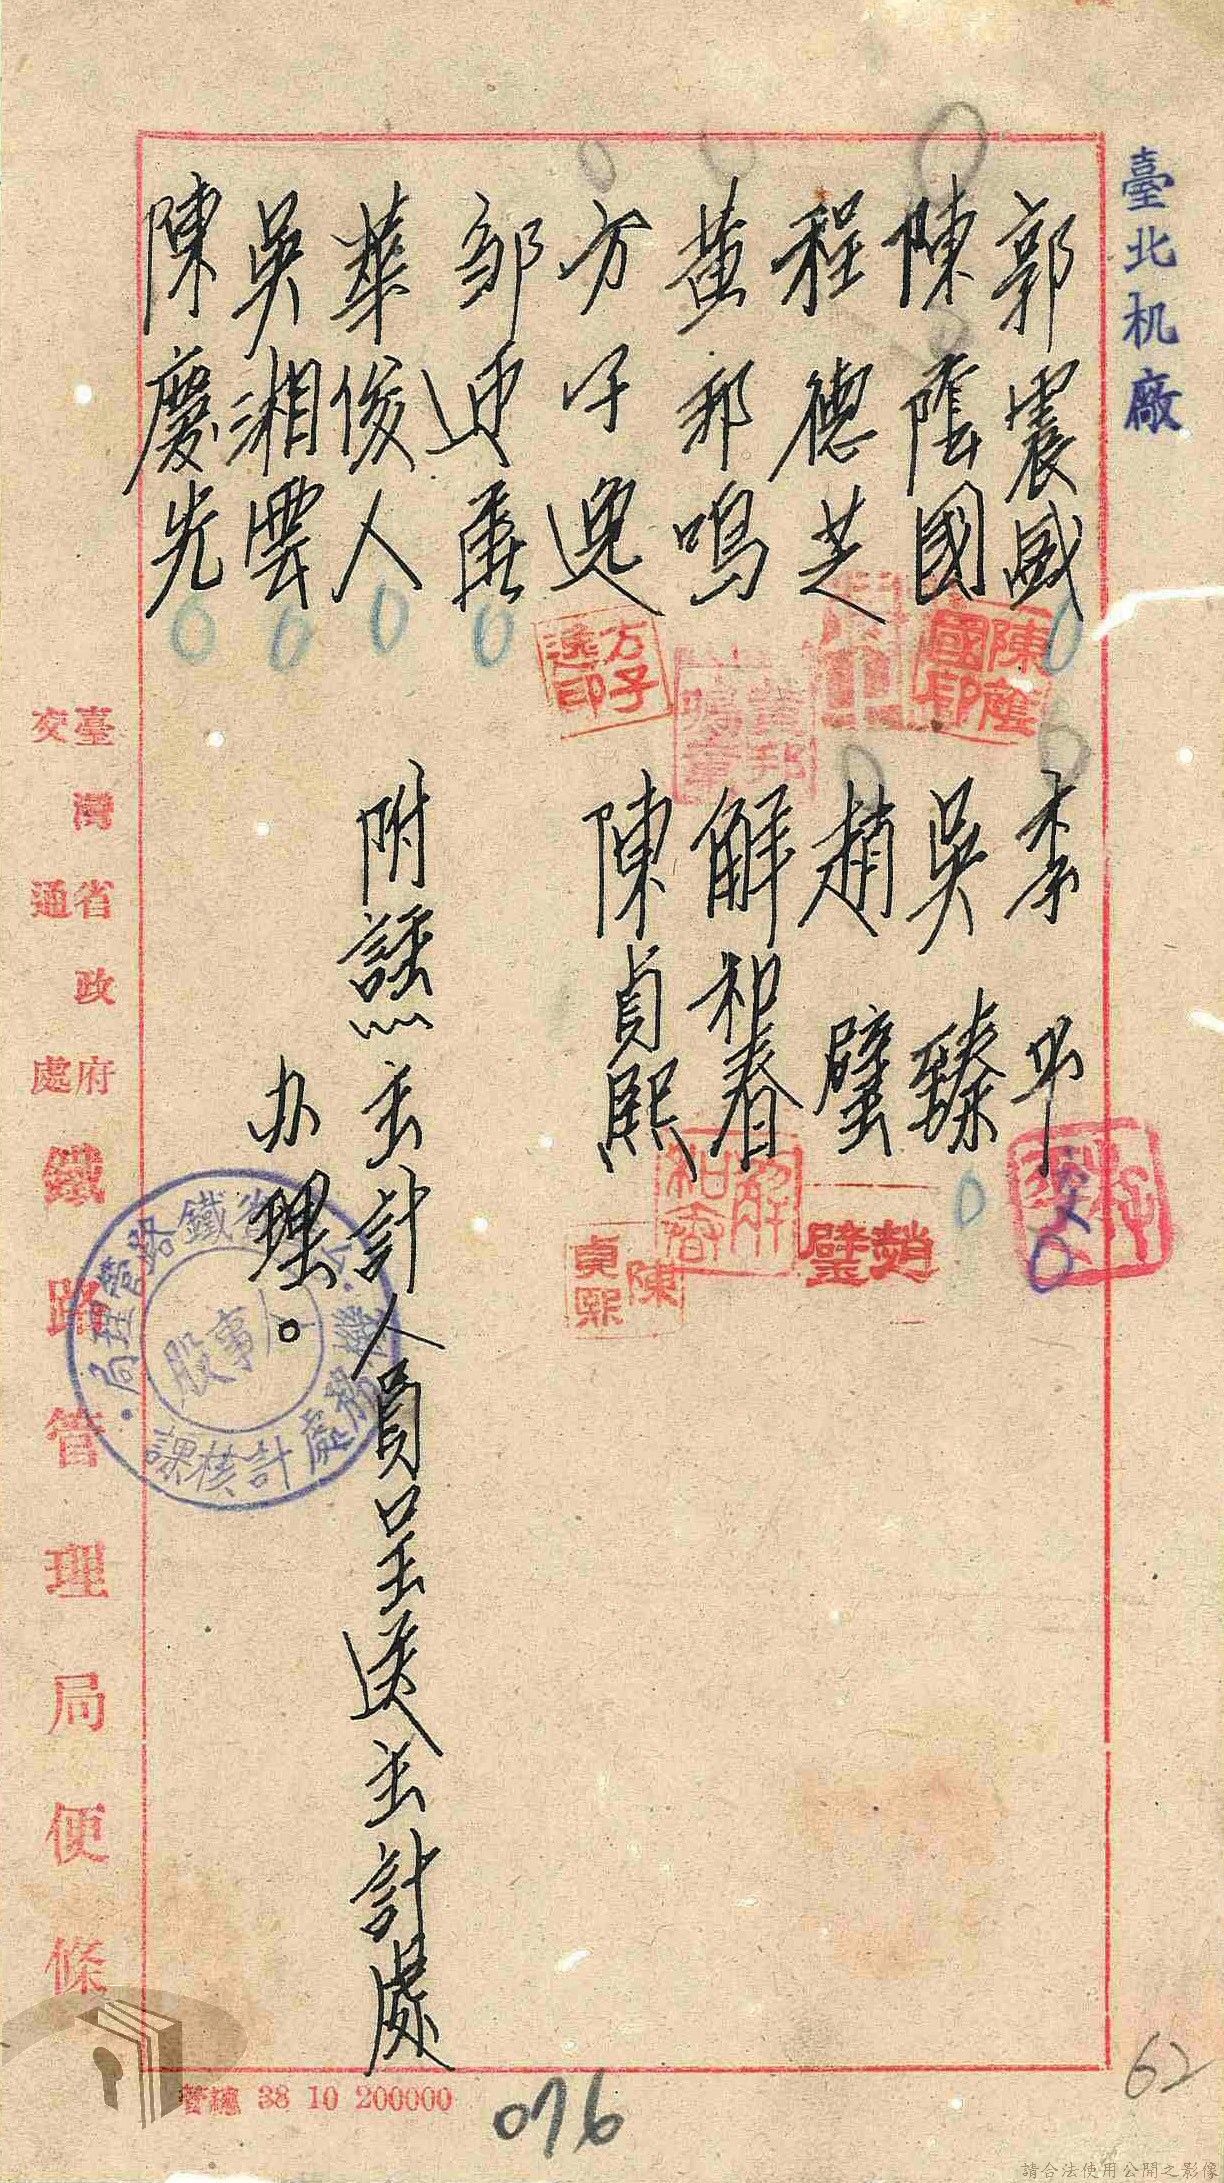 臺北机廠
郭震威
陳蔭國
程德芝
黃邦鳴
方子逸
邹
華俊人
吳湘雲
陳慶光
陳蔭國印
黃邦鳴章
方子逸印
李平
吳臻
趙璧
解和春
陳貞熙
趙璧
解和春
陳貞熙
附註：主計人員呈送主計處
办理。
鐵路管理局
機務處計核課
人事股
臺灣省政府
交通處
鐵路管理局便條
管總 38 10 200000
076
62
請合法使用公開之影像